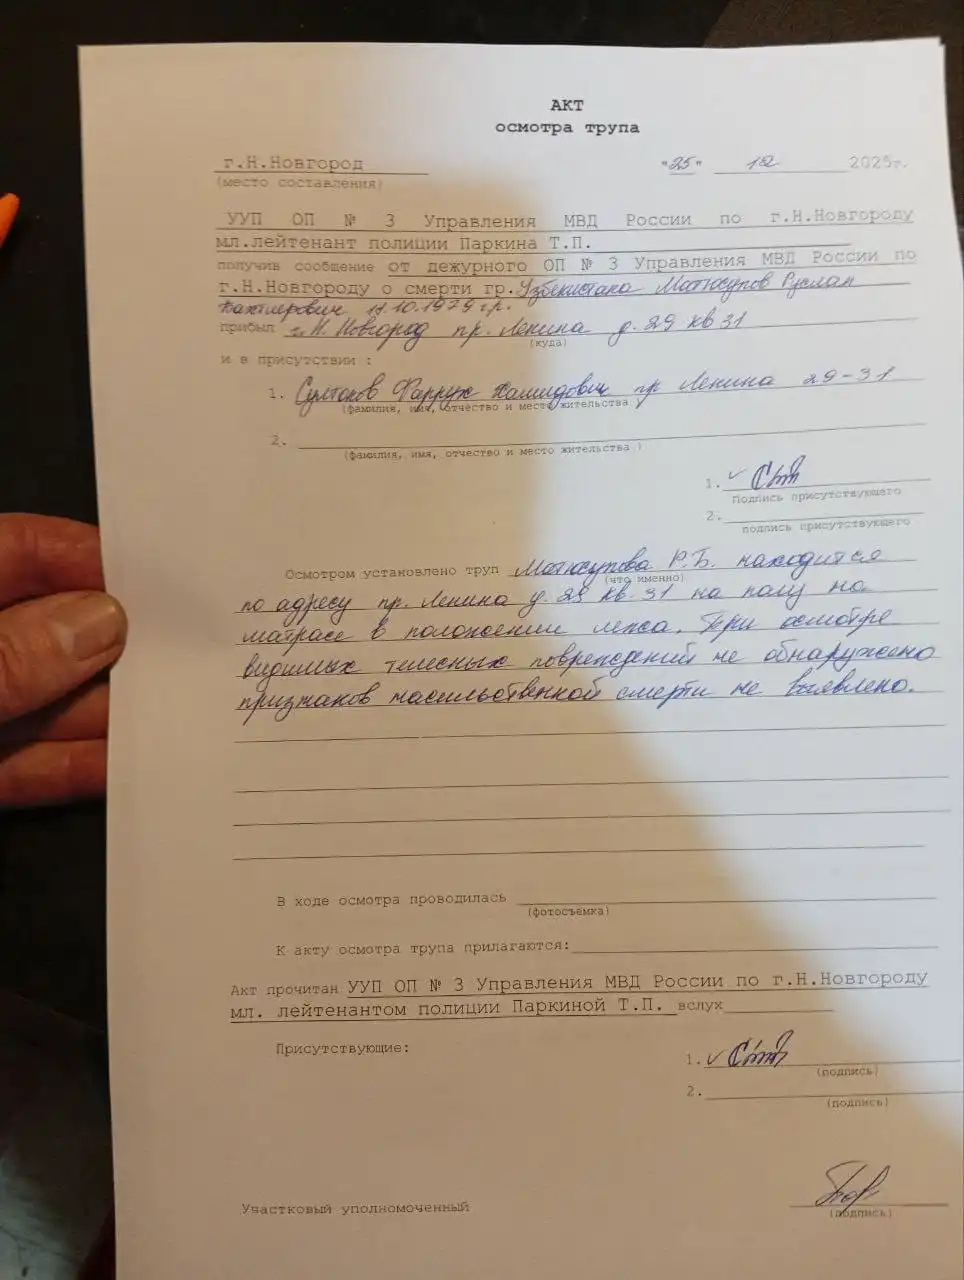 АКТ
осмотра трупа
г.Н.Новгород "25" 12 2025г.
(место составления)
УУП ОП № 3 Управления МВД России по г.Н.Новгороду
мл.лейтенант полиции Паркина Т.П.
получив сообщение от дежурного ОП № 3 Управления МВД России по
г.Н.Новгороду о смерти гр. Узбекистана Матюсупов Руслан
11.10.1979 г.р.
прибыл г.Н.Новгород пр. Ленина д. 29 кв 31
(куда)
и в присутствии :
1. Султонов Фаррух Хамидович пр Ленина 29-31
(фамилия, имя, отчество и место жительства )
2.
(фамилия, имя, отчество и место жительства )
1.
Подпись присутствующего
2.
подпись присутствующего
Осмотром установлено труп Матюсупова Р.Б. находится
(что именно)
по адресу пр. Ленина д. 29 кв. 31 на полу на
матрасе в положении лежа. При осмотре
видимых телесных повреждений не обнаружено
признаков насильственной смерти не выявлено.
В ходе осмотра проводилась
(фотосъёмка)
К акту осмотра трупа прилагаются:
Акт прочитан УУП ОП № 3 Управления МВД России по г.Н.Новгороду
мл. лейтенантом полиции Паркиной Т.П. вслух
Присутствующие:
1.
(подпись)
2.
(подпись)
Участковый уполномоченный
(подпись)